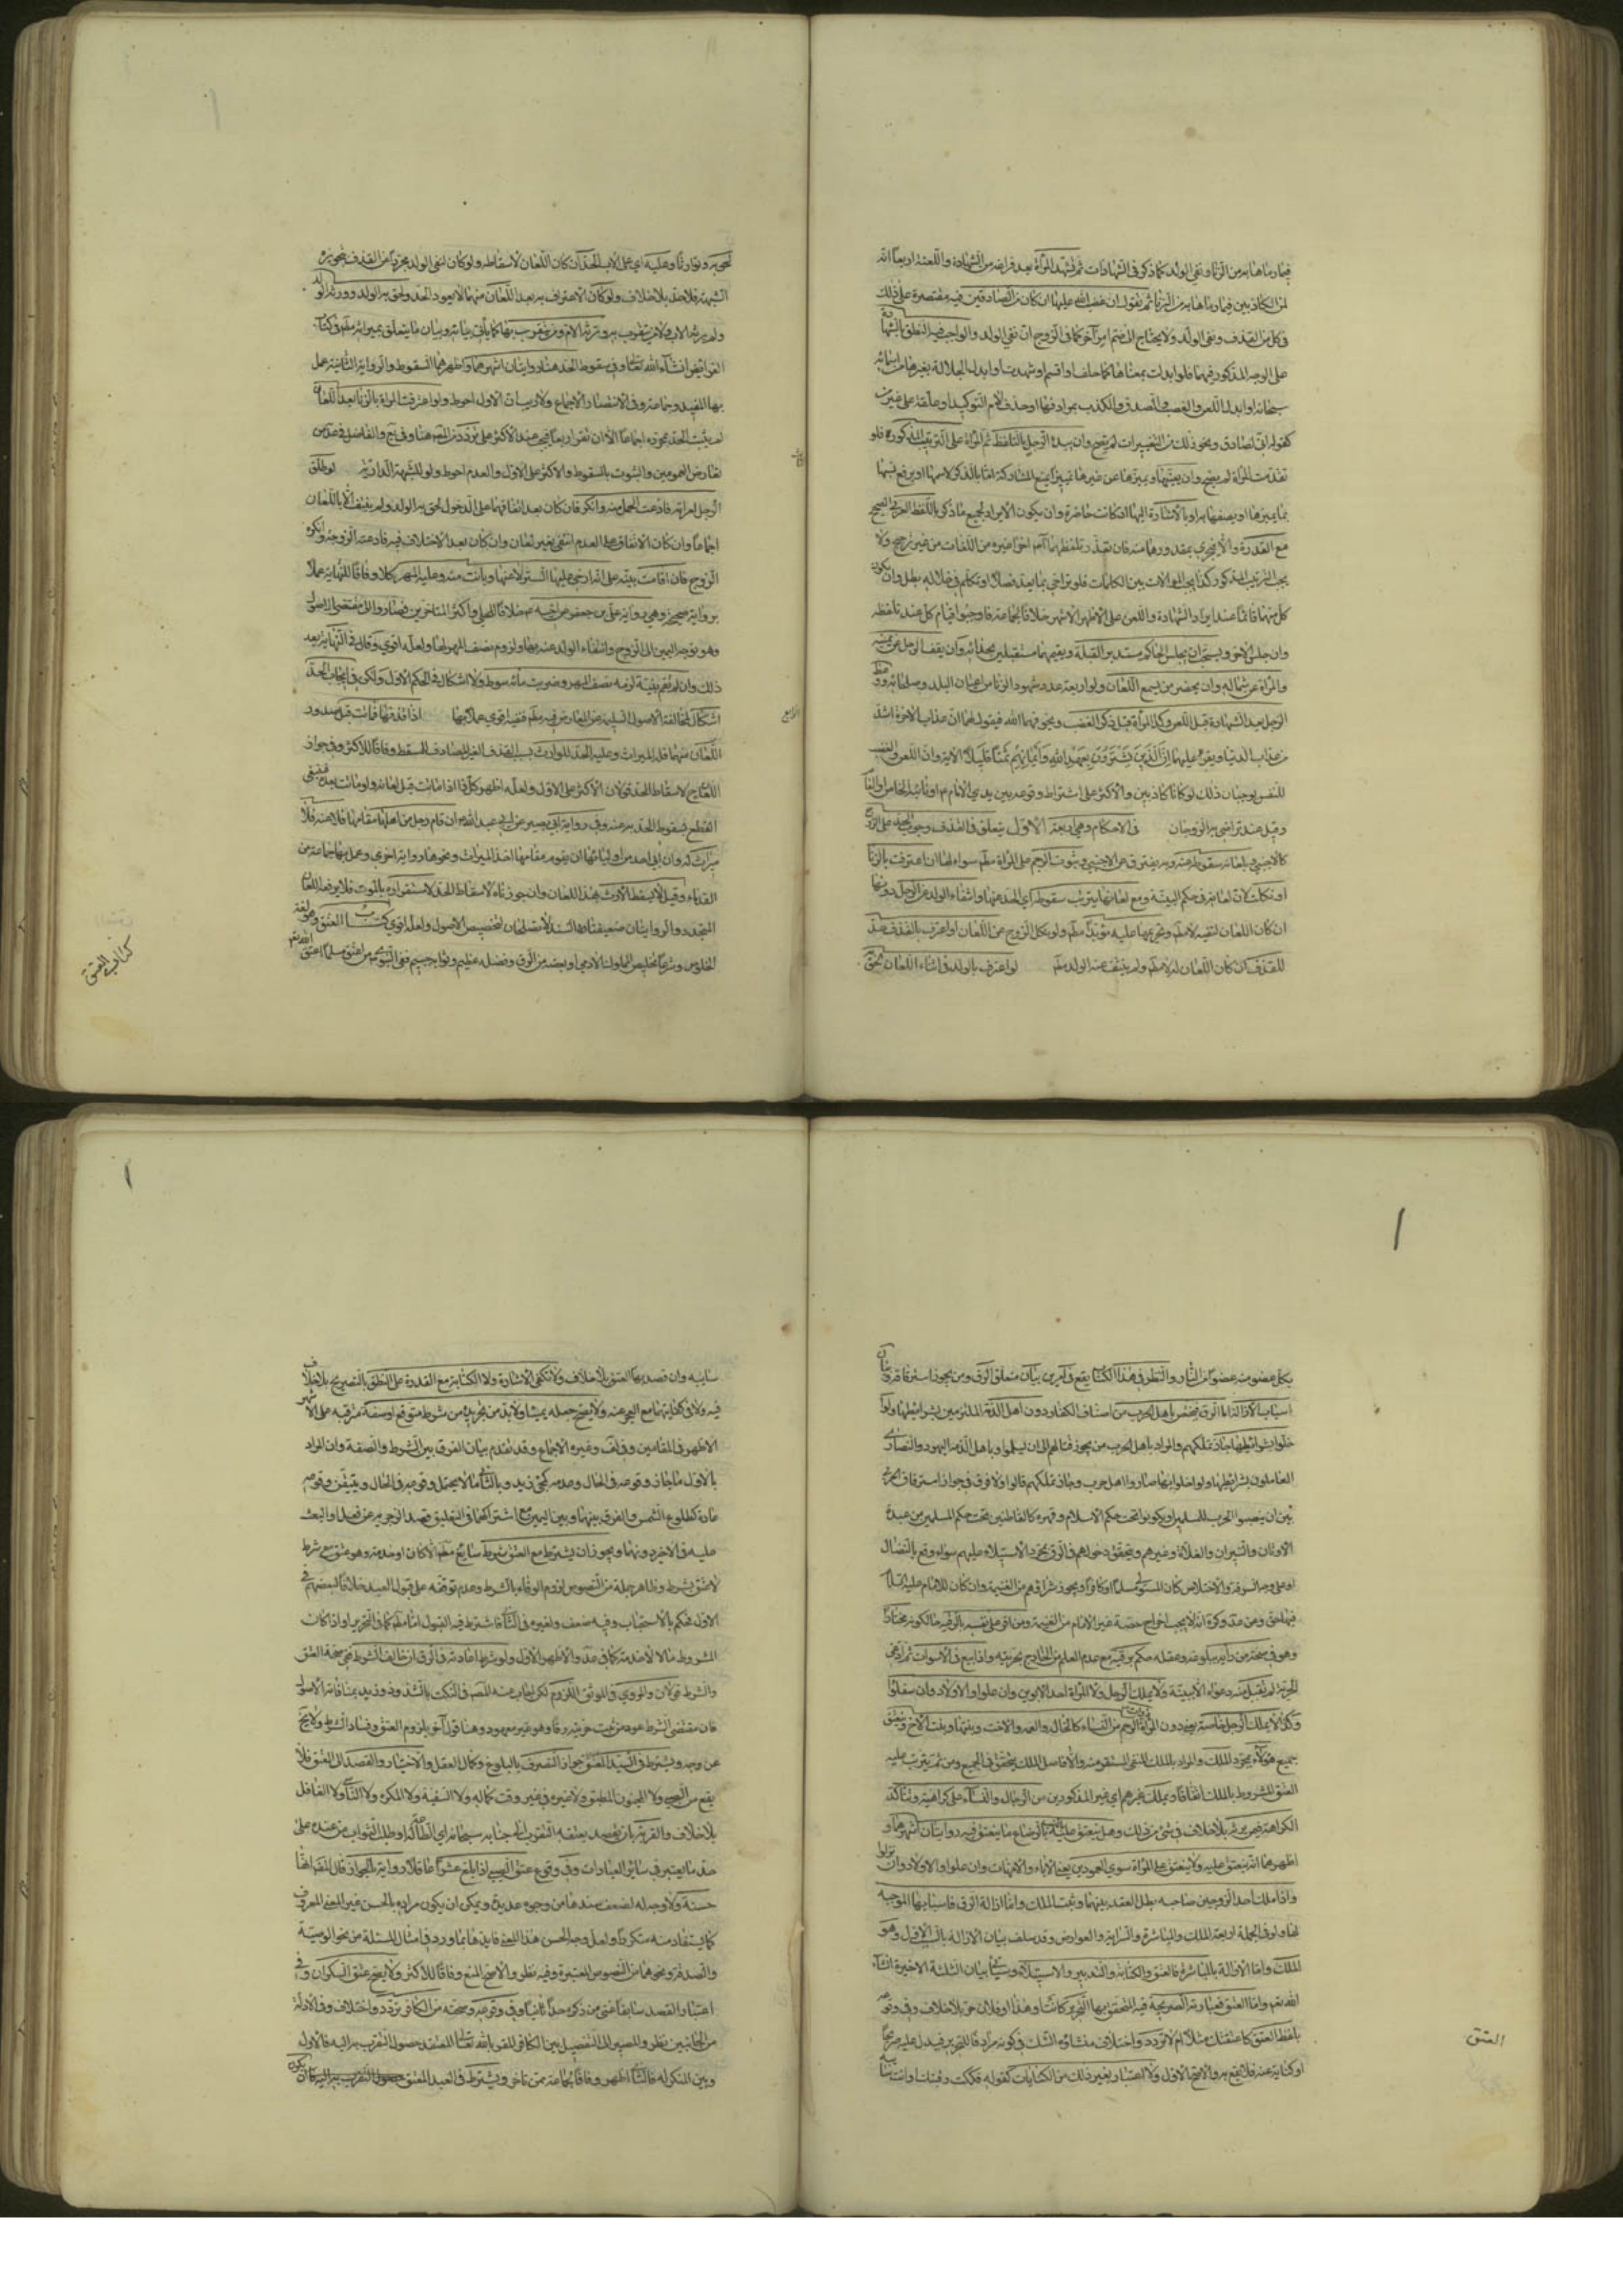 فيما رماها به من الزنا ونفي الولد كما ذكر في الشهادات ثم تشهد المرأة بعد فراغه من الشهادة واللعنة اربعاً انه
لمن الكاذبين فيما رماها به من الزنا ثم تقول ان غضب الله عليها ان كان من الصادقين فيه مقتصرة على ذلك
في كل من القذف ونفي الولد ولا يحتاج الى ضم امر آخر كما في الزوج ان نفى الولد والواجب فيه النطق بالشهادة
على الوجه المذكور فيهما فلو ابدلت بمعناها كاحلف او اقسم او شهدت او ابدل الجلالة بغيرها من اسمائه
سبحانه او ابدلا اللعن والغضب والصدق والكذب بمرادفها او حذف لام التوكيد او علقه على غير من
كقوله اني لصادق ونحو ذلك من التغييرات لم يصح وان يبدء الرجل بالتلفظ ثم المرأة على الترتيب المذكور فلو
تقدمت المرأة لم يصح وان يعينها ويميزها عن غيرها تمييزا يمنع المشاركة اما بالذكر لاسمها او يرفع نسبها
بما يميزها او يصفها به او بالاشارة اليها ان كانت حاضرة وان يكون الايراد لجميع ما ذكر باللفظ العربي الصحيح
مع القدرة والا فيجزي بمقدورهما منه فان تعذر تلفظهما به اجزأ غيره من اللغات من غير ترجيح ولا
يجب الترتيب المذكور كذا يجب الموالات بين الكلمات فلو تراخى بما يعد فصلا او تكلم في خلاله بطل وان يكون
كل منهما قائما عند ايراد الشهادة واللعن على الاظهر الاشهر خلافا لجماعة فاوجبوا قيام كل عند تلفظه
وان جلس الاخر ويستحب ان يجلس الحاكم مستدبر القبلة ويقيمهما مستقبلين بحذائه وان يقف الرجل عن يمينه
والمرأة عن شماله وان يحضر من يسمع اللعان ولو اربعة عدد شهود الزنا من اعيان البلد وصلحائه ووعظ
الرجل بعد الشهادة قبل اللعن وكذا المرأة قبل ذكر الغضب ويخوفهما الله فيقول لهما ان عذاب الاخرة اشد
من عذاب الدنيا ويقرء عليهما ان الذين يشترون بعهد الله وايمانهم ثمنا قليلا الاية وان اللعن والغضب
للنفس يوجبان ذلك لو كانا كاذبين والاكثر على اشتراط وقوعه بين يدي الامام او نائبه الخاص او العام
وقيل عند تراضي به الزوجان في الاحكام وهي اربعة الاول يتعلق في القذف وجوب الحد على الزوج
كالاجنبي وبلعانه سقوطه عنه وبه يفترق عن الاجنبي وثبوت الرجم على المرأة سواء لها ان اعترفت بالزنا
او نكلت لان لعانه في حكم البينة ومع لعانها يترتب سقوطه اي الحد عنهما وانتفاء الولد عن الرجل دونها
ان كان اللعان لنفيه وتحريمها عليه مؤبدا ولو نكل الزوج عن اللعان او اعترف بالقذف حد
للقذف ان كان اللعان له ولم ينتف عنه الولد لو اعترف بالولد في اثناء اللعان لحق
به وتوارثا وعليه اي على الاب الحد ان كان اللعان لاسقاطه ولو كان لنفي الولد مجردا عن القذف
الشبهة فلا حد بلا خلاف ولو كان الاعتراف به بعد اللعان منهما لا يعود الحد ولحق به الولد وورثه الولد
ولم يرثه الاب ولا من يتقرب به وترثه الام ومن يتقرب بها كما يأتي بيانه وبيان ما يتعلق بميراثه في كتاب
الفرائض ان شاء الله تعالى وفي سقوط الحد هنا روايتان اشهرهما واظهرهما السقوط والرواية الثانية عمل
بها المفيد وجماعة وفي الانتصار الاجماع ولا ريب ان الاول احوط ولو اعترفت المرأة بالزنا بعد اللعان
لم يثبت الحد بمجرده اجماعا الا ان تقر اربعا فيجب عند الاكثر على تردد
تعارض العمومين والثبوت بالسقوط والاكثر على الاول والعدم احوط ولو للشبهة الدارئة لو طلق
الرجل امرأته فادعت الحمل منه وانكر فان كان بعد اتفاقهما على الدخول لحق به الولد ولم ينتف الا باللعان
اجماعا وان كان الاتفاق على العدم انتفى بغير لعان وان كان بعد الاختلاف فيه فادعته الزوجة وانكره
الزوج فان اقامت بينة على انه ارخى عليها الستر لاعنها وبانت منه وعليه المهر كملا وفاقا للنهاية عملا
برواية صحيحة وهي رواية علي بن جعفر عن اخيه خلافا للحلي واكثر المتاخرين فصاروا الى مقتضى الاصول
وهو توجه اليمين الى الزوج وانتفاء الولد عنه بها ولزوم نصف المهر لها ولعله اقوى وقال في النهاية بعد
ذلك وان لم تقم بينة لزمه نصف المهر وضربت مائة سوط ولا اشكال في الحكم الاول ولكن في ايجاب الحد
اشكال لمخالفة الاصول السليمة عن المعارض اذا قذفها فماتت قبل صدور
اللعان منهما فله الميراث وعليه الحد للوارث بسبب القذف الغير المصادف للمسقط وفاقا للاكثر وفي جواز
اللعان لاسقاط الحد قولان الاكثر على الاول ولعله اظهر كل ذا اذا ماتت قبل لعانه ولو ماتت بعده فينبغي
القطع بسقوط الحد به عنه وفي رواية ابي بصير عن ابي عبد الله ان قام رجل من اهلها مقامها فلاعنه فلا
ميراث له وان ابى احد من اوليائها ان يقوم مقامها اخذ الميراث ونحوها رواية اخرى وعمل بهما جماعة من
القدماء وقيل لا يسقط الارث بهذا اللعان وان جوزناه لاسقاط الحد لاستقراره بالموت فلا يرفعه اللعان
المتجدد والروايتان ضعيفتا السند لا تصلحان لتخصيص الاصول ولعله اقوى كتاب العتق وهو لغة
الخلوص وشرعا تخليص المملوك الادمي او بعضه من الرق وفضله عظيم وثوابه جسيم ففي النبوي من اعتق مسلما اعتق الله
كتاب العتق
بكل عضو منه عضوا من النار والنظر في هذا الكتاب يقع في امرين بيان متعلق الرق ومن يجوز استرقاقه وبيان
اسباب الازالة اما الرق فيختص باهل الحرب من اصناف الكفار دون اهل الذمة الملتزمين بشرائطها ولو
خلوا بشرائطها جاز تملكهم والمراد باهل الحرب من يجوز قتالهم الى ان يسلموا وباهل الذمة اليهود والنصارى
العاملون بشرائطها ولو اخلوا بها صاروا اهل حرب وجاز تملكهم قالوا ولا فرق في جواز استرقاق الحربي
بين ان ينصبوا الحرب للمسلمين او يكونوا تحت حكم الاسلام وقهره كالقاطنين تحت حكم المسلمين من عبدة
الاوثان والنيران والغلاة وغيرهم ويتحقق دخولهم في الرق بمجرد الاستيلاء عليهم سواء وقع بالقتال
او على وجه السرقة والاختلاس كان المستولي مسلما او كافرا ويجوز شراؤهم من الغنيمة وان كان للامام عليه السلام
فيها حق ومن اقر على نفسه بالرقية حالكونه مختارا
وهو في صحة من رأيه ببلوغه وعقله حكم برقيته مع عدم العلم من الخارج بحريته واذا بيع في الاسواق ثم ادعى
الحرية لم يقبل منه دعواه الا ببينة ولا يملك الرجل ولا المرأة احد الابوين وان علوا والاولاد وان سفلوا
وكذا لا يملك الرجل خاصة دون المرأة ذوات الرحم من النساء كالخالة والعمة والاخت وبنتها وبنت الاخ وينعتق
جميع هؤلاء بمجرد الملك والمراد بالملك المنفي المستقر منه والا فاصل الملك يتحقق في الجميع ومن ثم يترتب عليه
العتق المشروط بالملك اتفاقا ويملك غيرهم اي غير المذكورين من الرجال والنساء على كراهية وتتأكد
الكراهة فيمن يرثه بلا خلاف في شيء من ذلك وهل ينعتق عليه بالرضاع ما ينعتق فيه روايتان اشهرهما و
اظهرهما انه ينعتق عليه ولا ينعتق على المرأة سوى العمودين يعني الاباء والامهات وان علوا والاولاد وان نزلوا
واذا ملك احد الزوجين صاحبه بطل العقد بينهما وثبت الملك واما ازالة الرق فاسبابها الموجبة
لها ولو في الجملة اربعة الملك والمباشرة والسراية والعوارض وقد سلف بيان الازالة بالسبب الاول وهو
الملك واما الازالة بالمباشرة فالعتق والكتابة والتدبير والاستيلاد وسيأتي بيان الثلثة الاخيرة ان شاء
الله تعالى واما العتق فعبارته الصريحة فيه المتحقق بها التحرير كانت وهذا او فلان حر بلا خلاف وفي وقوعه
بلفظ العتق كاعتقتك مثلا ام لا تردد واختلاف منشاؤه الشك في كونه مرادفا للتحرير فيدل عليه صريحا
او كناية عنه فلا يقع به والاصح الاول ولا اعتبار بغير ذلك من الكنايات كقوله فككت رقبتك او انت سائبة
العتق
سايبة وان قصد بها العتق بلا خلاف ولا تكفي الاشارة ولا الكتابة مع القدرة على النطق بالتصريح بلا خلاف
فيه ولا في كفايتهما مع العجز عنه ولا يصح جعله يمينا ولا بد من تجريده من شرط متوقع او صفة مترقبة على الاشهر
الاظهر في المقامين وفي لف وغيره الاجماع وقد تقدم بيان الفرق بين الشرط والصفة وان المراد
بالاول ما جاز وقوعه في الحال وعدمه كمجيء زيد وبالثاني ما لا يحتمل وقوعه في الحال ويتيقن وقوعه
عادة كطلوع الشمس والفرق بينهما وبين اليمين مع اشتراكهما في التعليق قصد الزجر به عن فعل او البعث
عليه في الاخير دونهما ويجوز ان يشترط مع العتق شرط سايغ كان او خدمة وهو عتق مع شرط
لا عتق بشرط وظاهر جملة من النصوص لزوم الوفاء بالشرط وعدم توقفه على قبول العبد خلافا لبعضهم في
الاول فحكم بالاستحباب وفيه ضعف ولغيره في الثاني فاشترط فيه القبول كما في التحرير او اذا كان
المشروط مالا لا خدمة والاظهر الاول ولو شرط اعادته في الرق ان خالف الشرط ففي صحة العتق
والشرط قولان والمروي في الموثق اللزوم لكن اجاب عنه المصنف في النكت بالشذوذ وزيد بمنافاته الاصول
فان مقتضى الشرط عود من ثبت حريته رقا وهو غير معهود وهنا قول آخر بلزوم العتق وفساد الشرط ولا يخلو
عن وجه ويشترط في السيد المعتق جواز التصرف بالبلوغ وكمال العقل والاختيار والقصد الى العتق فلا
يقع من الصبي ولا المجنون المطبق ولا غيره في غير وقت كماله ولا السفيه ولا المكره ولا الناسي ولا الغافل
بلا خلاف والقربة بان يقصد بعتقه التقرب الى جنابه سبحانه اي الطاعة له او طلب الثواب من عنده على
حد ما يعتبر في سائر العبادات وفي وقوع عتق الصبي اذا بلغ عشرا رواية بالجواز قال المصنف انها
حسنة ولا وجه له لضعف سندها من وجوه عديدة ويمكن ان يكون مراده بالحسن غير المعنى المعروف
كما يستفاد منه متكررا ولعل وجه الحسن هذا المعنى تأييدها بما ورد في امثال المسئلة من نحو الوصية
والصدقة ونحوهما من النصوص المعتبرة وفيه نظر والاصح المنع وفاقا للاكثر ولا يصح عتق السكران وفي
اعتبار القصد سابقا غنى من ذكره جدا ثانيا وفي وقوعه وصحته من الكافر تردد واختلاف وفي الادلة
من الجانبين نظر والمصير الى التفصيل بين الكافر المقر بالله تعالى المعتقد حصول التقرب به اليه فالاول
وبين المنكر له فالثاني اظهر وفاقا لجماعة ممن تأخر ويشترط في العبد المعتق ان يكون